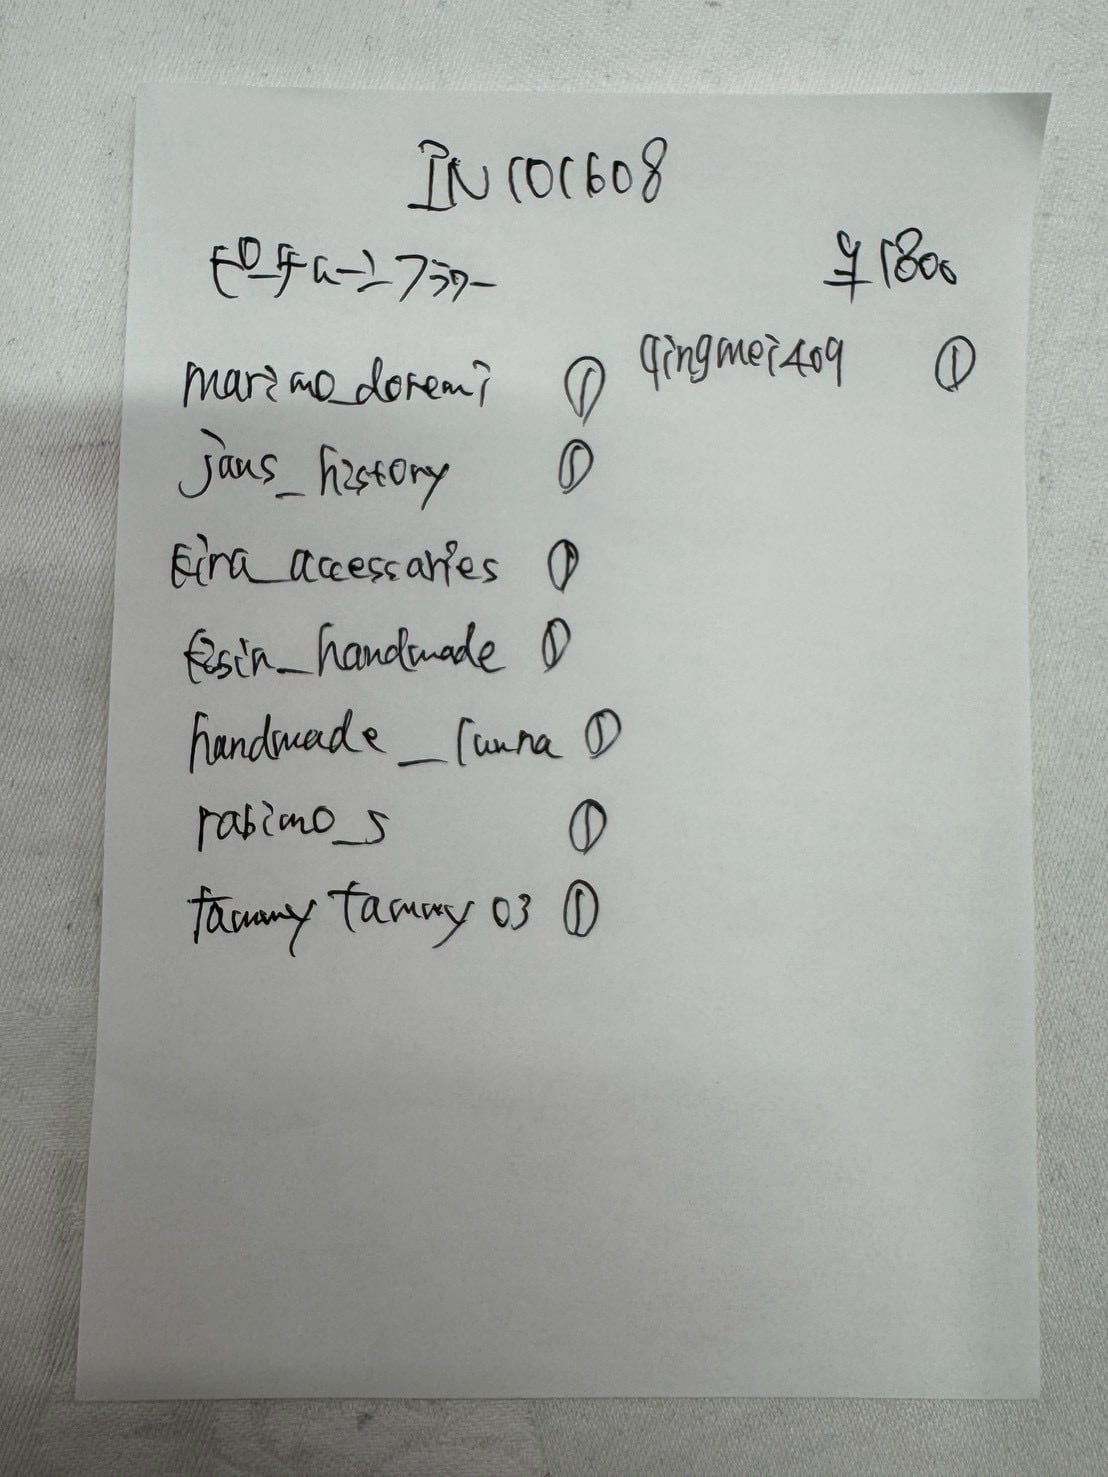 IN101608
モロッカーンフラワー ¥1800
marimo_doremi ①
jaus_history ①
Eira_accessaries ①
_handmade ①
handmade_lunna ①
rabimo_s ①
tammy tammy 03 ①
qingmei409 ①